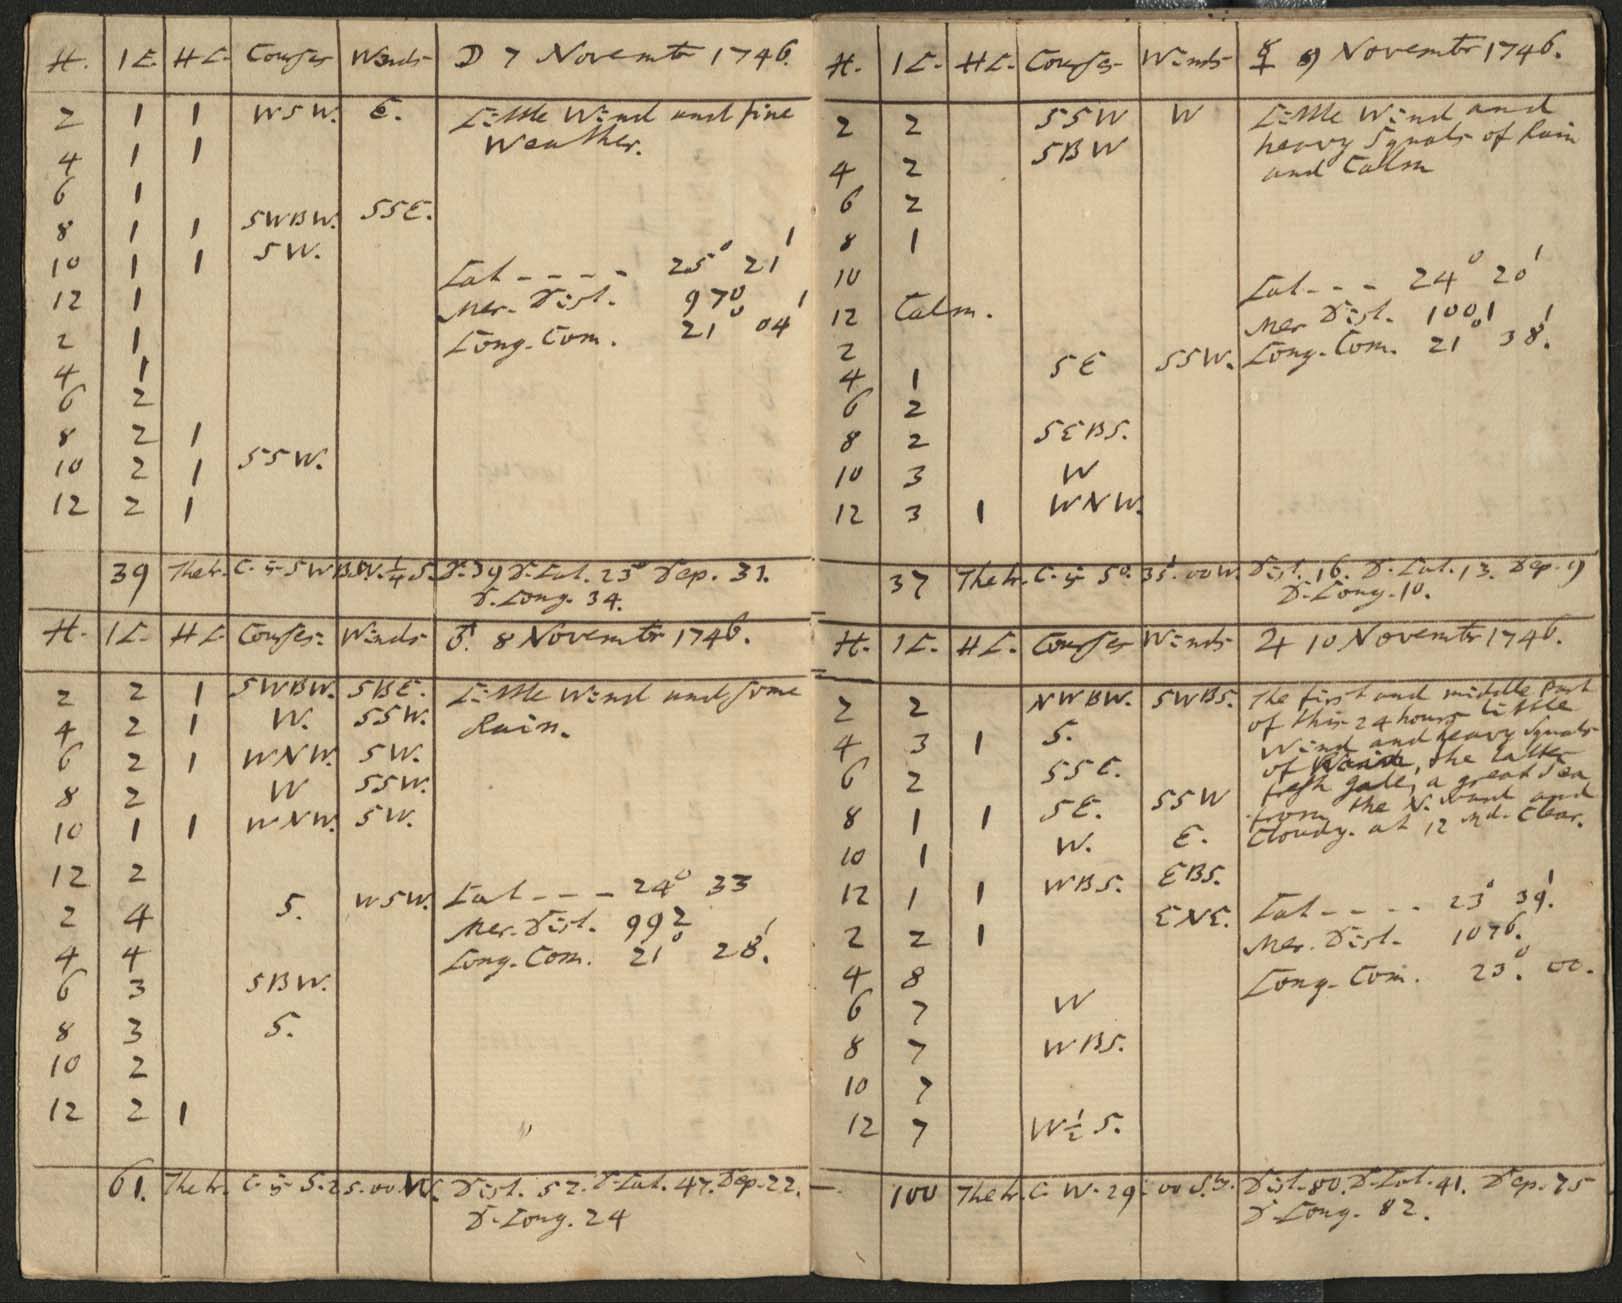 H. 1K. HK. Courses Winds ☽ 7 November 1746.
2 1 1 WSW. E. Little Wind and fine
4 1 1 Weather.
6 1
8 1 1 SWBW. SSE.
10 1 1 SW.
Lat - - - - 25° 21'
12 1 Mer. Dist. 970
2 1 Long. Com. 21° 04'
4 1
6 2
8 2 1
10 2 1 SSW.
12 2 1
39 The tr. C. is SWBW. ¼ S. D. 39 D. Lat. 23 Dep. 31.
D. Long. 34.
H. 1K. HK. Courses. Winds ♂. 8 November 1746.
2 2 1 SWBW. SBE. Little Wind and some
4 2 1 W. SSW. Rain.
6 2 1 WNW. SW.
8 2 W SSW.
10 1 1 WNW. SW.
12 2
2 4 S. WSW. Lat - - - 24° 33
Mer. Dist. 992
4 4 Long. Com. 21° 28'.
6 3 SBW.
8 3 S.
10 2
12 2 1
61. The tr. C. is S. 25. 00 W. Dist. 52. D. Lat. 47. Dep. 22.
D. Long. 24
H. 1K. HK. Courses Winds ☿ 9 November 1746.
2 2 SSW W Little Wind and
heavy Squals of Rain
4 2 SBW and Calm
6 2
8 1
10 Lat - - - 24° 20'
12 Calm. Mer Dist. 1001
2 Long. Com. 21° 38'.
4 1 SE SSW.
6 2
8 2 SEBS.
10 3 W
12 3 1 WNW.
37 The tr. C. is So. 35. 00 W. Dist. 16. D. Lat. 13. Dep. 9
D. Long. 10.
H. 1K. HK. Courses Winds ♃ 10 November 1746.
2 2 NWBW. SWBS. The first and middle Part
of this 24 hours little
4 3 1 S. Wind and heavy Squals
6 2 SSE. of the latter
fresh gale, a great Sea
8 1 1 SE. SSW from the N. ward and
10 1 W. E. Cloudy. at 12 Md. Clear.
12 1 1 WBS. EBS.
Lat - - - - 23° 39'.
2 2 1 ENE. Mer. Dist. 1076.
4 8 Long. Com. 23°. 00.
6 7 W
8 7 WBS.
10 7
12 7 W ½ S.
100 The tr. C. W. 29 00 S. Dist. 80. D. Lat. 41. Dep. 75
D. Long. 82.